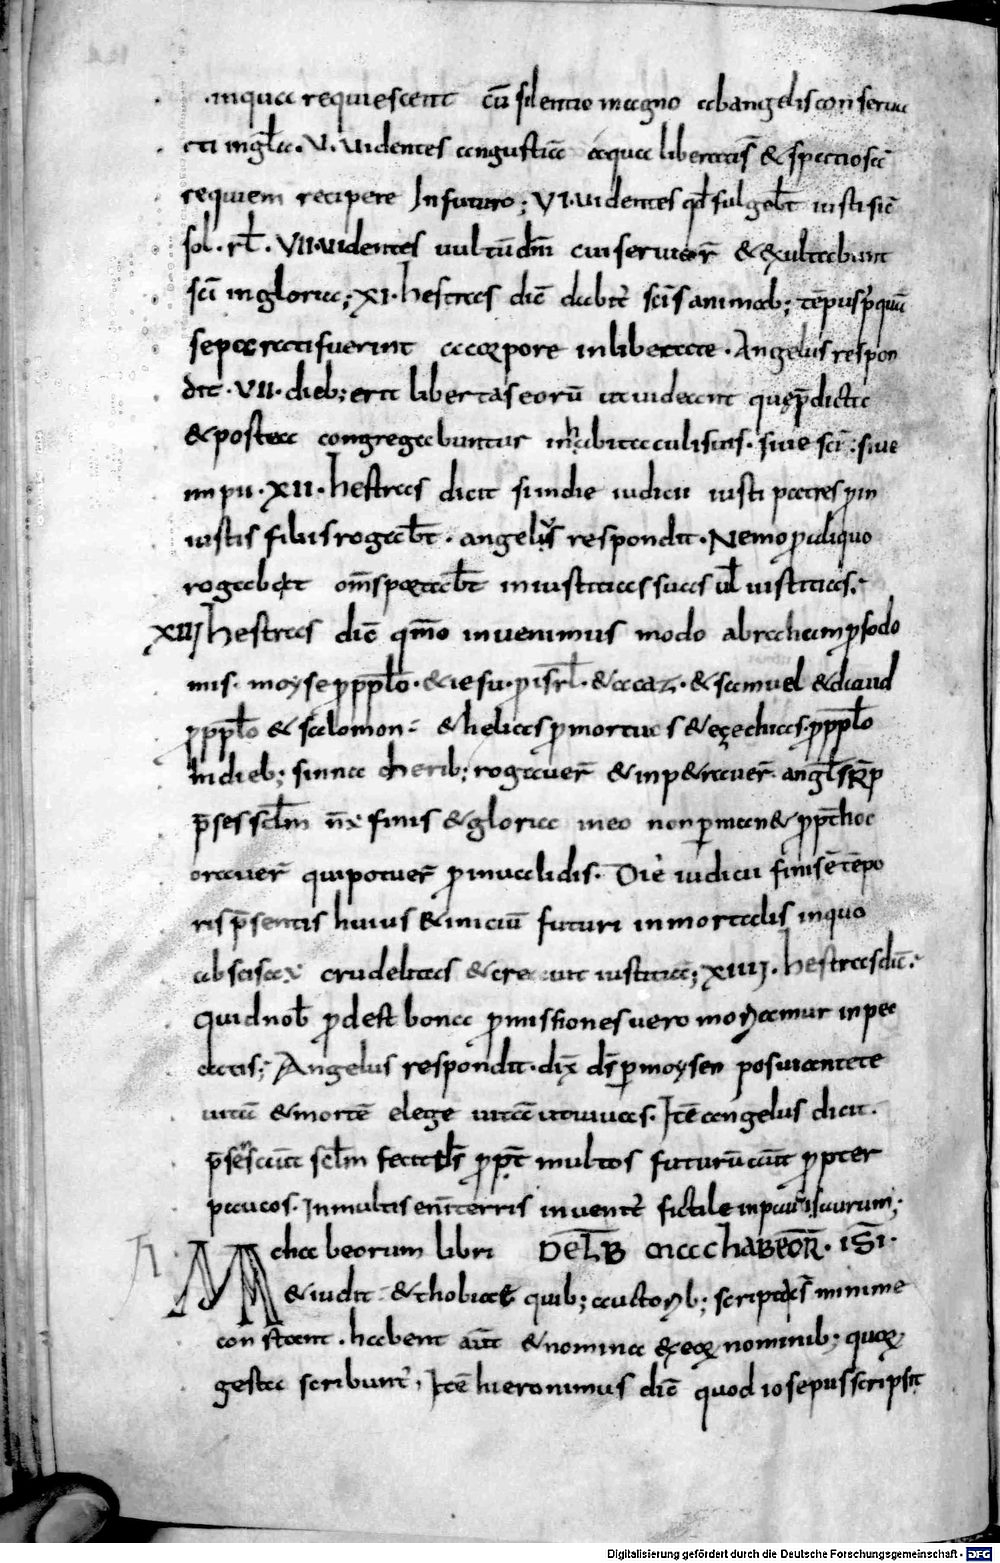 in qua requiescent cū silentio magno ab angelis conserua
ti in gl̄a. V. uidentes angustiā a qua liberatis̄ & spatiosā
requiem recipere In futuro; VI. uidentes qd̄ fulgeb̄t iusti sic̄
sol. rl̄. VII. uidentes uultū dn̄i cui seruier̄ & exultabunt
sc̄i in gloria; XI. hestras dic̄ dabit̄ sc̄is animab; tēpus p̄quā
separati fuerint a corpore in libertate. Angelus respon
dit. VII. dieb; erit libertas eorū ut uideant quę p̄dicta
& postea congregabuntur in habitaculis suis. siue sc̄i. siue
impii. XII. hestras dicit si in die iudicii iusti patres p̄ in
iustis filiis rogab̄t. angelus respondit. Nemo p̄ aliquo
rogabit om̄s portab̄t iniustitias suas ul̄ iustitias;
XIIJ hestras dic̄ qm̄o inuenimus modo abraham p̄ sodo
mis. moyse p̄ ppl̄o. & iesu. p̄ isrl̄. & acaz. & samuel & dauid
p̄ ppl̄o & salomon & helias p̄ mortuis & ezechias. p̄ ppl̄o
In dieb; sinnacherib; rogauer̄ & inp&rauer̄. angl̄s R̄p
p̄ses scl̄m n̄ x̄ finis & gloria in eo non p̄man& p̄pt̄ hoc
orauer̄ qui potuer̄ p̄ inualidis. Diē iudicii finis ē tēpo
ris p̄sentis huius & iniciū futuri inmortalis in quo
abscisa ē crudelitas & creuit iustitia; XIIIJ. hestras dic̄.
Quid nob̄ p̄dest bona p̄missiones uero moriamur in pec
catis; Angelus respondit. dix̄ ds̄ p̄ moysen posui ante te
uitā & mortē elege uitā ut uiuas. Itē angelus dicit.
p̄sens aūt scl̄m fecit ds̄ p̄pt̄ multos futurū aūt p̄pter
paucos. In multis enī terris inuenit̄ fictile in paucis aurum;
Machabeorum libri DE LB MACHABEOR̄. ISI.
& iudit & thobiae quib; auctorib; scripti s̄ minime
constant. habent aūt & nomina ex eor̄ nominib; quor̄
gesta scribunt̄. Itē hieronimus dic̄ quod iosepus scripsit